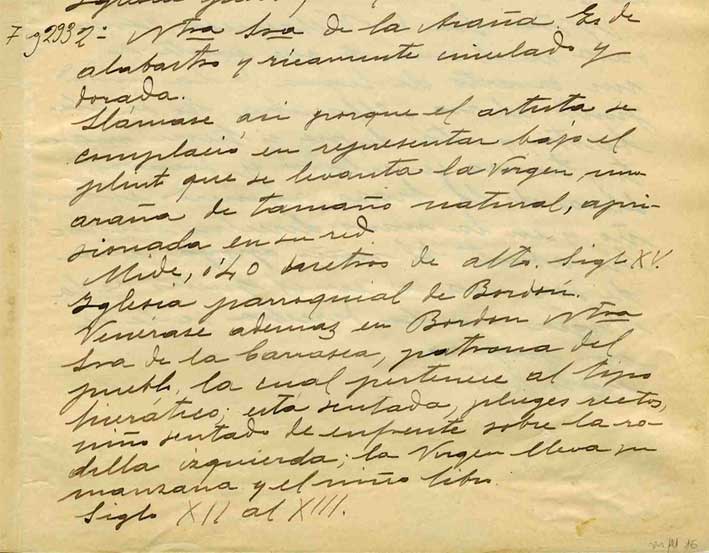 Iglesia
7 g 293 2ª Ntra Sra de la Araña. Es de
alabastro y ricamente cincelado y
dorada.
Llámase asi porque el artista se
complació en representar bajo el
plint que se levanta la Virgen, una
araña de tamaño natural, apri-
sionada en su red.
Mide, 0'40 metros de alto. Siglo XV.
Iglesia parroquial de Bordón.
Venerase ademas en Bordon Ntra
Sra de la Carrasca, patrona del
pueblo, la cual pertenece al tipo
hierático; está sentada, pliuges rectos,
niño sentado de enfrente sobre la ro-
dilla izquierda; la Virgen lleva su
manzana y el niño libro.
Siglo XII al XIII.